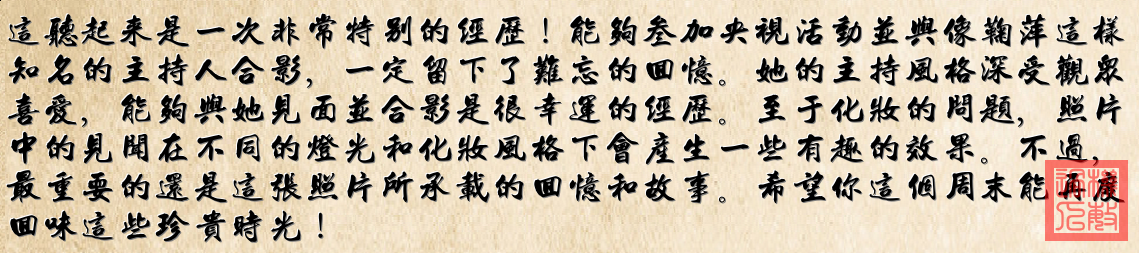 這聽起来是一次非常特别的經歷！能夠叁加央視活動並與像鞠萍這樣
知名的主持人合影，一定留下了難忘的回憶。她的主持風格深受觀眾
喜愛，能夠與她見面並合影是很幸運的經歷。至于化妝的問題，照片
中的見聞在不同的燈光和化妝風格下會産生一些有趣的效果。不過，
最重要的還是這張照片所承載的回憶和故事。希望你這個周末能再度
回味這些珍貴時光！